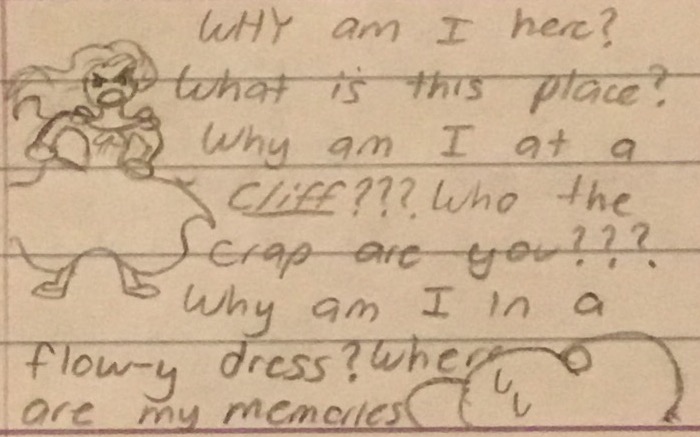 WHY am I here?
What is this place?
Why am I at a
Cliff???. Who the
crap are you???
Why am I in a
flow-y dress? Where
are my memories